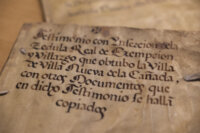 Testimonio con Insercion dela
Zedula Real de Exempcion
y Villazgo que obtubo la Villa
de Villa Nueva dela Cañada,
con otros Documentos que
en dicho Testimonio se hallã
copiados